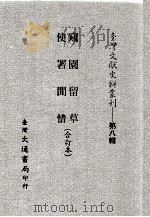 臺灣文獻史料叢刊 第八輯
窺園留草
使署閒情
(合訂本)
臺灣大通書局印行